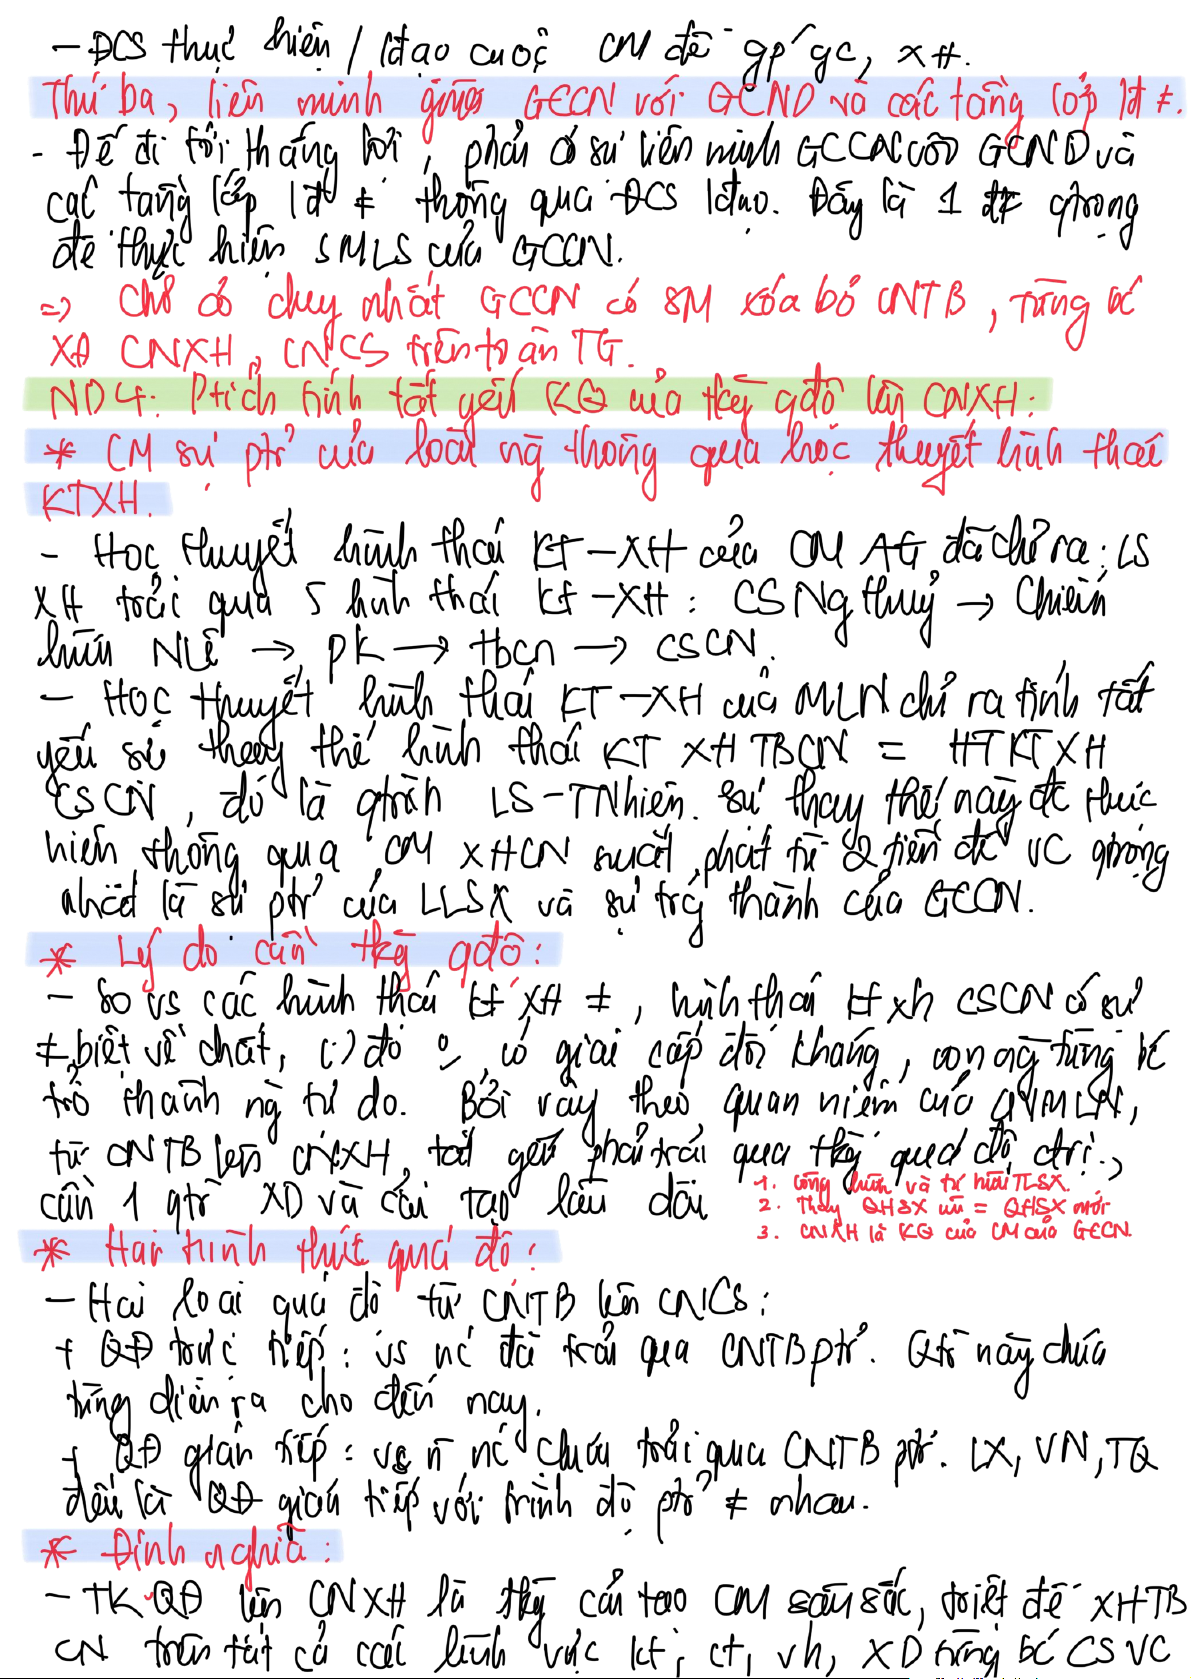 - ĐCS thực hiện / lđạo cuộc CM để gp gc, XH.
Thứ ba, liên minh giữa GCCN với GCND và các tầng lớp lđ ≠.
- Để đi tới thắng lợi, phải có sự liên minh GCCN với GCND và
các tầng lớp lđ ≠ thông qua ĐCS lđạo. Đây là 1 đk qtrọng
để thực hiện SMLS của GCCN.
=> Chỉ có duy nhất GCCN có SM xóa bỏ CNTB, từng bc
XD CNXH, CNCS trên toàn TG.
ND4: Ptích tính tất yếu KQ của tkỳ qđộ lên CNXH:
* CM sự ptr của loài ng thông qua học thuyết hình thái
KTXH.
- Học thuyết hình thái KT-XH của CM AG đã chỉ ra: LS
XH trải qua 5 hình thái kt-XH: CSNg thuỷ → Chiếm
hữu NLệ → pk → tbcn → CSCN.
- Học thuyết hình thái KT-XH của MLN chỉ ra tính tất
yếu sự thay thế hình thái KT XH TBCN = HTKTXH
CSCN, đó là qtrình LS-TNhiên. Sự thay thế này đc thực
hiện thông qua CM XHCN xuất phát từ 2 tiền đề VC qtrọng
nhất là sự ptr của LLSX và sự trg thành của GCCN.
* Lý do cần tkỳ qđộ:
- So vs các hình thái kt XH ≠, hình thái kt xh CSCN có sự
≠ biệt về chất, (-) đó 0, có giai cấp đối kháng, con ng từng bc
trở thành ng tự do. Bởi vậy theo quan niệm của CNMLN,
từ CNTB lên CNXH, tất yếu phải trải qua tkỳ quá độ ctrị.,
cần 1 qtr XD và cải tạo lâu dài
1. Công hữu và tư hữu TLSX.
2. Thay QHSX cũ = QHSX mới
3. CNXH là KQ của CM của GCCN.
* Hai hình thức quá độ:
- Hai loại quá độ từ CNTB lên CNCS:
+ QĐ trực tiếp: vs nc đã trải qua CNTB ptr. Qtr này chưa
từng diễn ra cho đến nay.
+ QĐ gián tiếp: vs n~ nc chưa trải qua CNTB ptr. LX, VN, TQ
đều là QĐ gián tiếp với trình độ ptr ≠ nhau.
* Định nghĩa:
- TKQĐ lên CNXH là tkỳ cải tạo CM sâu sắc, triệt để XHTB
CN trên tất cả các lĩnh vực kt, ct, vh, XD từng bc CSVC